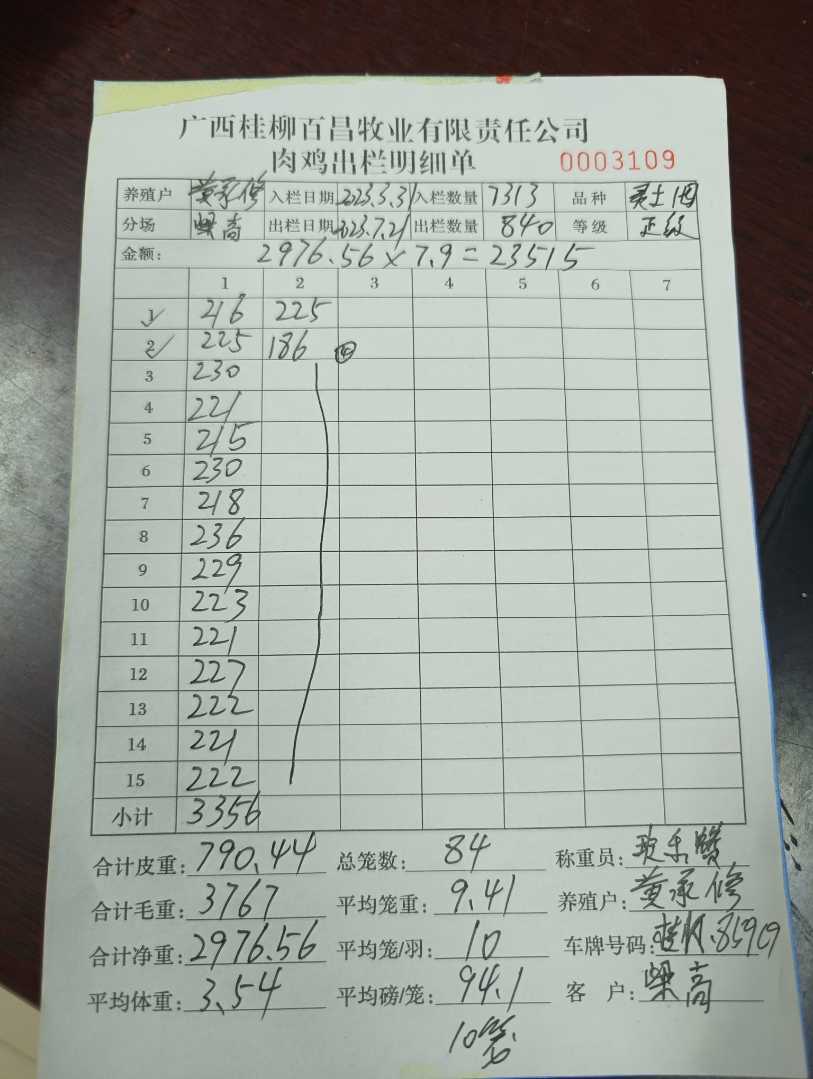 广西桂柳百昌牧业有限责任公司
肉鸡出栏明细单 0003109
养殖户 黄承修 入栏日期 2023.3.31 入栏数量 7313 品种 灵土
分场 梁高 出栏日期 2023.7.21 出栏数量 840 等级 正级
金额: 2976.56×7.9=23515
1 2 3 4 5 6 7
1 216 225
2 225 186 ④
3 230
4 221
5 215
6 230
7 218
8 236
9 229
10 223
11 221
12 227
13 222
14 221
15 222
小计 3356
合计皮重: 790.44 总笼数: 84 称重员:
合计毛重: 3767 平均笼重: 9.41 养殖户: 黄承修
合计净重: 2976.56 平均笼/羽: 10 车牌号码:
平均体重: 3.54 平均磅/笼: 94.1 客 户: 梁高
10笼